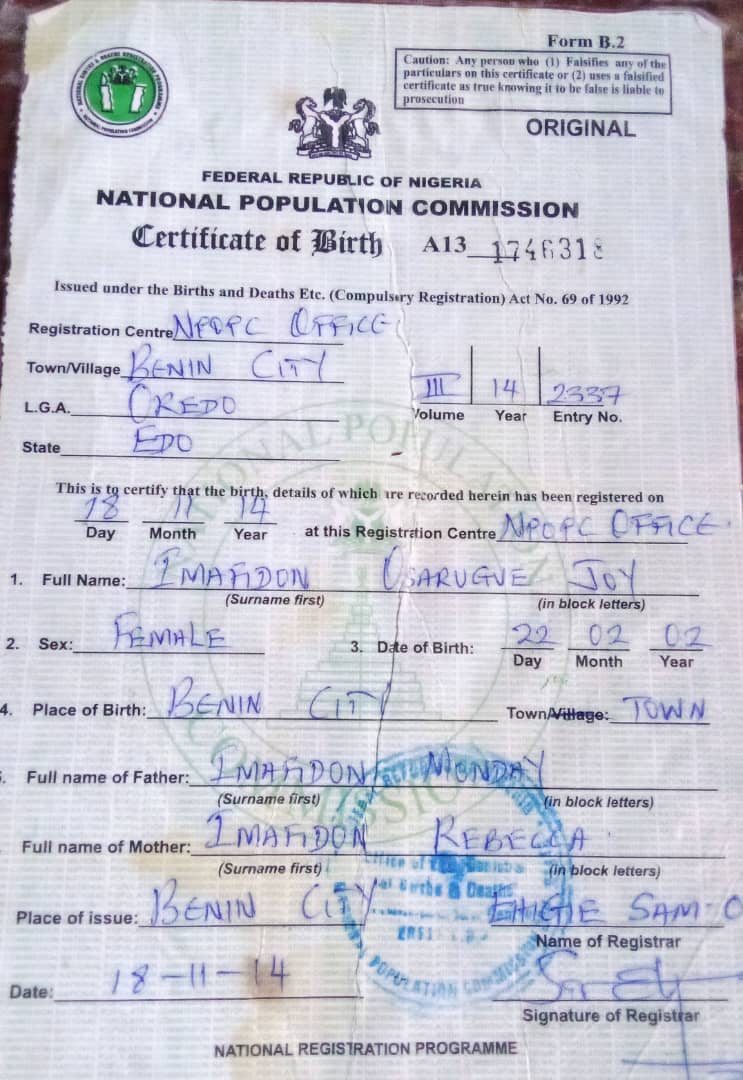 Form B.2
Caution: Any person who (1) Falsifies any of the
particulars on this certificate or (2) uses a falsified
certificate as true knowing it to be false is liable to
prosecution
ORIGINAL
FEDERAL REPUBLIC OF NIGERIA
NATIONAL POPULATION COMMISSION
Certificate of Birth A13 1746318
Issued under the Births and Deaths Etc. (Compulsary Registration) Act No. 69 of 1992
Registration Centre NPOPC OFFICE
Town/Village BENIN CITY
III 14 2337
L.G.A. OREDO
Volume Year Entry No.
State EDO
This is to certify that the birth, details of which are recorded herein has been registered on
18 11 14
Day Month Year at this Registration Centre NPOPC OFFICE
1. Full Name: IMAFIDON OSARUGUE JOY
(Surname first) (in block letters)
2. Sex: FEMALE 3. Date of Birth: 22 02 02
Day Month Year
4. Place of Birth: BENIN CITY Town/Village: TOWN
Full name of Father: IMAFIDON MONDAY
(Surname first) (in block letters)
Full name of Mother: IMAFIDON REBECCA
(Surname first) (in block letters)
Place of issue: BENIN CITY EHIGIE SAM-O
Name of Registrar
Date: 18-11-14
Signature of Registrar
NATIONAL REGISTRATION PROGRAMME
NATIONAL POPULATION COMMISSION